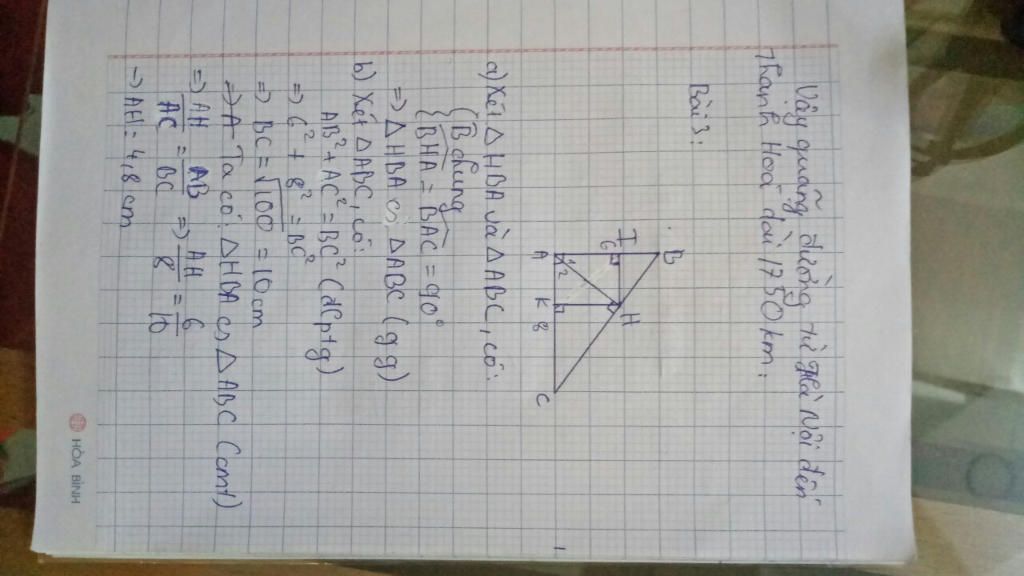 Vậy quãng đường từ Hà Nội đến
Thanh Hoá dài 1750 km.
Bài 3:
B
I
6
H
A
1
2
K
8
C
a) Xét △ HBA và △ ABC, có:
{ B̂ chung
{ BHA = BAC = 90°
=> △ HBA ∽ △ ABC (g.g)
b) Xét △ ABC, có:
AB² + AC² = BC² (đlptg)
=> 6² + 8² = BC²
=> BC = √100 = 10 cm
=> A Ta có: △ HBA ∽ △ ABC (cmt)
=> AH/AC = AB/BC => AH/8 = 6/10
-> AH = 4,8 cm
HÒA BÌNH